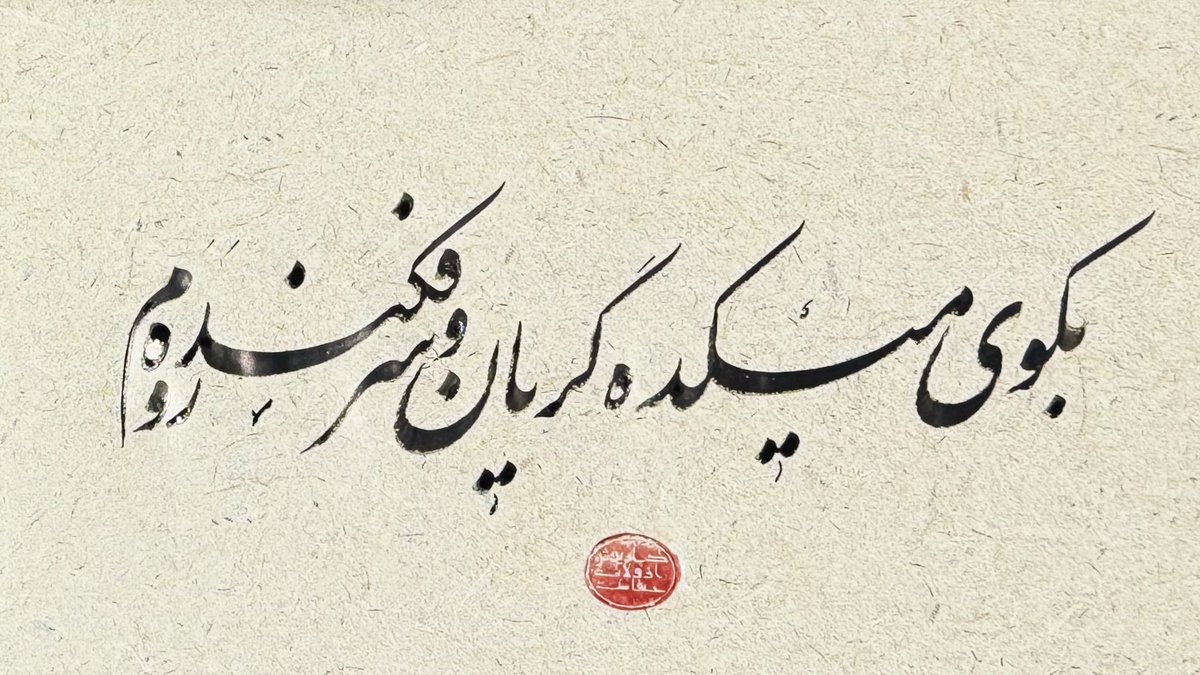 بکوی میکده گریان و سرفکنده روم